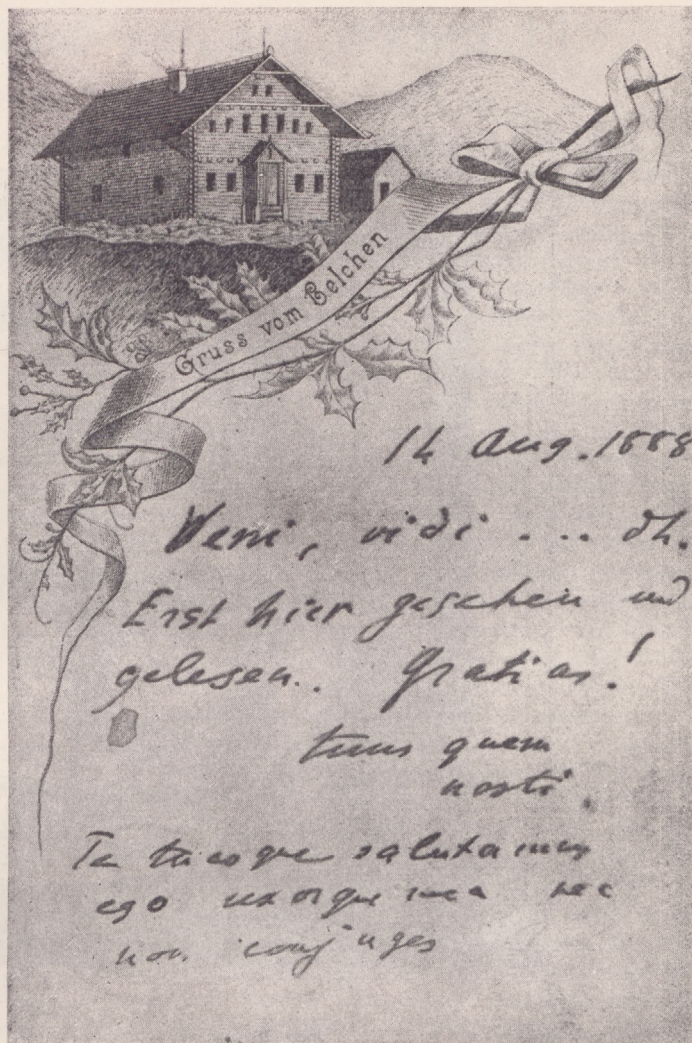 Gruss vom Belchen
14 Aug. 1888
Veni, vidi ... dh.
Erst hier gesehen und
gelesen.. Gratias!
tuus quem
nosti.
Te tuosque salutamus
ego uxorque mea nec
non conjuges